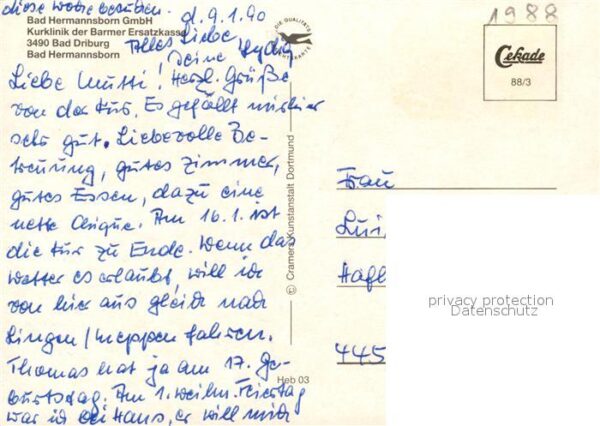 diese Woche besuchen.
d. 9.1.90
Alles Liebe
Deine Lydia
Bad Hermannsborn GmbH
Kurklinik der Barmer Ersatzkasse
3490 Bad Driburg
Bad Hermannsborn
Liebe Mutti! Herzl. Grüße
von der Kur. Es gefällt mir hier
sehr gut. Liebevolle Be-
treuung, gutes Zimmer,
gutes Essen, dazu eine
nette Clique. Am 16.1. ist
die Kur zu Ende. Wenn das
Wetter es erlaubt, will ich
von hier aus gleich nach
Lingen/Meppen fahren.
Thomas hat ja am 17. Ge-
burtstag. Am 1. Weihn. Feiertag
war ich bei Hans, er will mich
DIE QUALITÄTS
© Cramers Kunstanstalt Dortmund
Heb 03
1988
Cekade
88/3
Frau
Lui
Hafl
445
privacy protection
Datenschutz